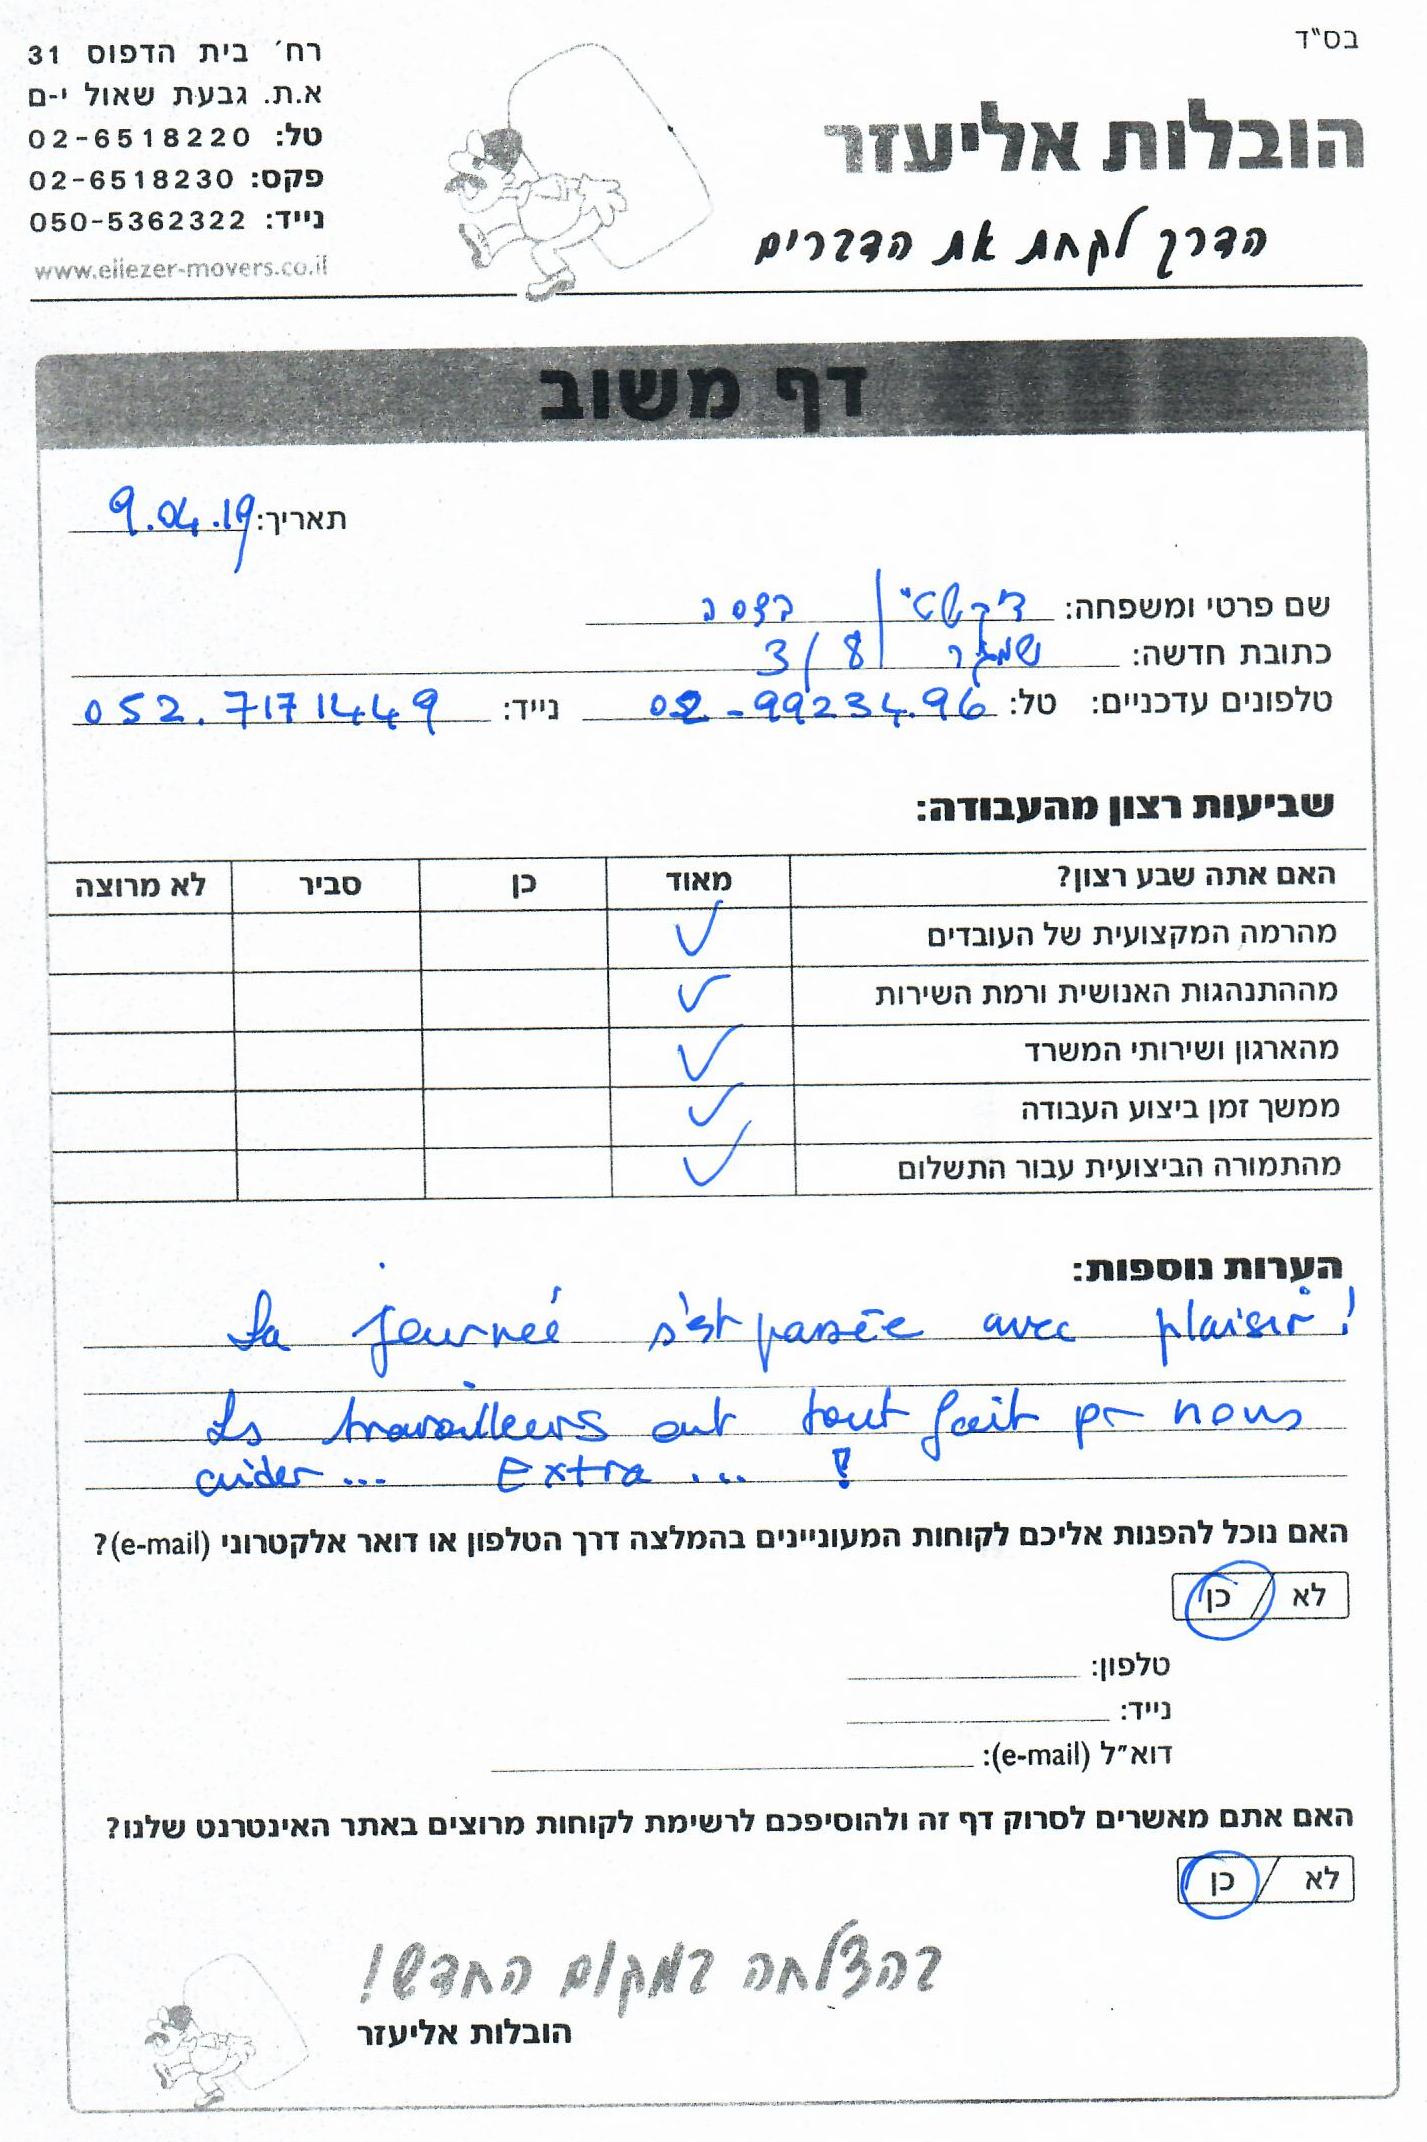 בס"ד
הובלות אליעזר
הדרך לקחת את הדברים
רח׳ בית הדפוס 31
א.ת. גבעת שאול י-ם
טל: 02-6518220
פקס: 02-6518230
נייד: 050-5362322
www.eliezer-movers.co.il
דף משוב
תאריך: 9.04.19
שם פרטי ומשפחה:
כתובת חדשה: שמגר 8/3
טלפונים עדכניים: טל: 02-99234.96 נייד: 052.7171449
שביעות רצון מהעבודה:
האם אתה שבע רצון? מאוד כן סביר לא מרוצה
מהרמה המקצועית של העובדים ✓
מההתנהגות האנושית ורמת השירות ✓
מהארגון ושירותי המשרד ✓
ממשך זמן ביצוע העבודה ✓
מהתמורה הביצועית עבור התשלום ✓
הערות נוספות:
La journeé s'est passée avec plaisir !
Ls travailleurs ont tout fait pr nous
aider ... Extra ... !
האם נוכל להפנות אליכם לקוחות המעוניינים בהמלצה דרך הטלפון או דואר אלקטרוני (e-mail)?
לא / כן
טלפון:
נייד:
דוא"ל (e-mail):
האם אתם מאשרים לסרוק דף זה ולהוסיפכם לרשימת לקוחות מרוצים באתר האינטרנט שלנו?
לא / כן
בהצלחה במקום החדש!
הובלות אליעזר